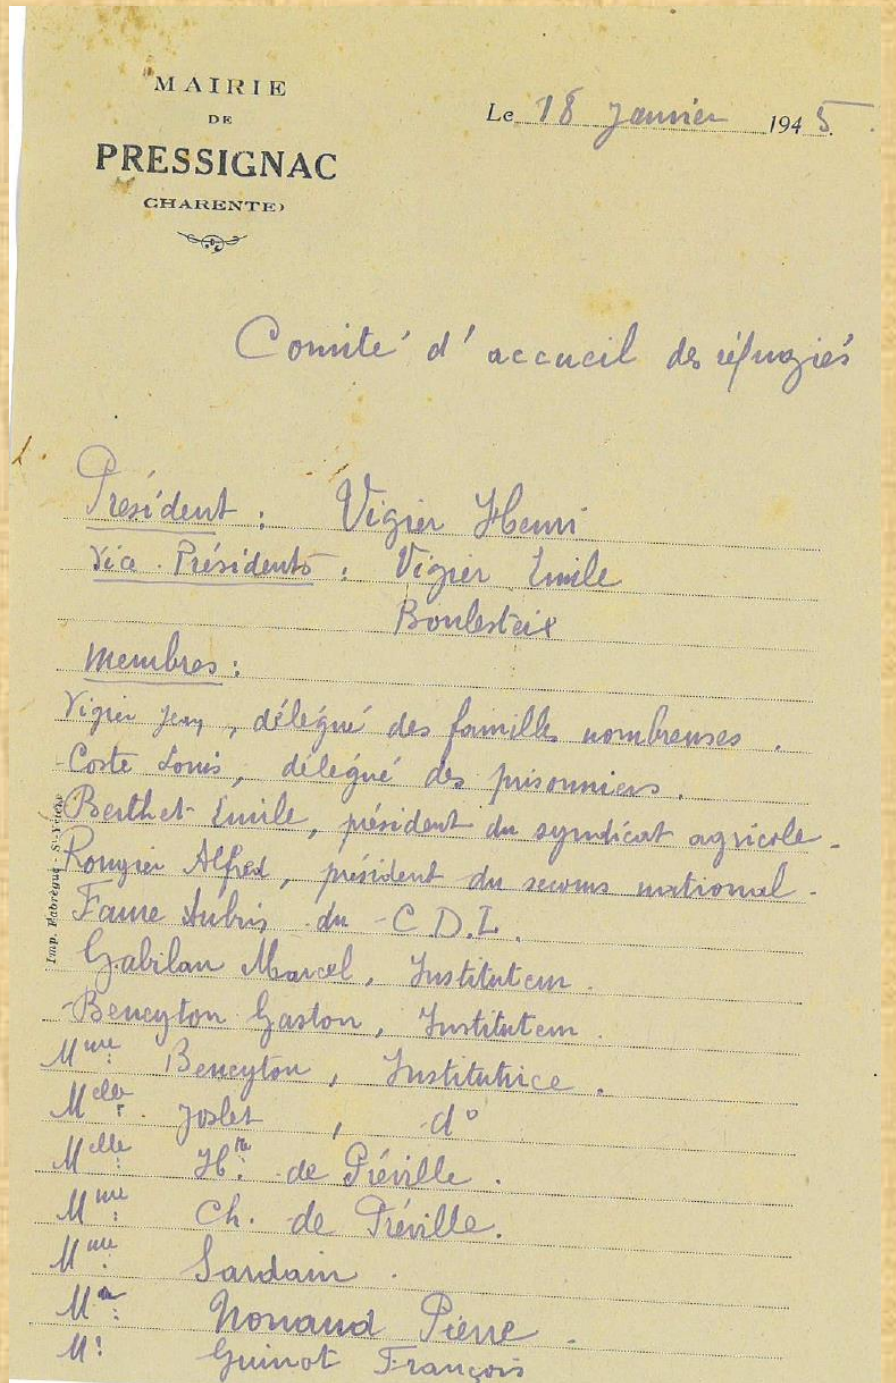 MAIRIE
DE
PRESSIGNAC
CHARENTE)
Le 18 Janvier 1945.
Comité d'accueil des réfugiés
Président : Vigier Henri
Vice-Présidents : Vigier Emile
Boulesteix
Membres :
Vigier Jean, délégué des familles nombreuses.
Coste Louis, délégué des prisonniers.
Berthet Emile, président du syndicat agricole.
Rougier Alfred, président du secours national.
Faure du C.D.L.
Gabilan Marcel, Instituteur.
Beneyton Gaston, Instituteur.
Mme Beneyton, Institutrice.
Melle Joslet, do
Melle Hte de Préville.
Mme Ch. de Préville.
Mme Sardain.
Mr Pierre.
Mr Guinot François
Imp. Fabrègue - St-Yrieix